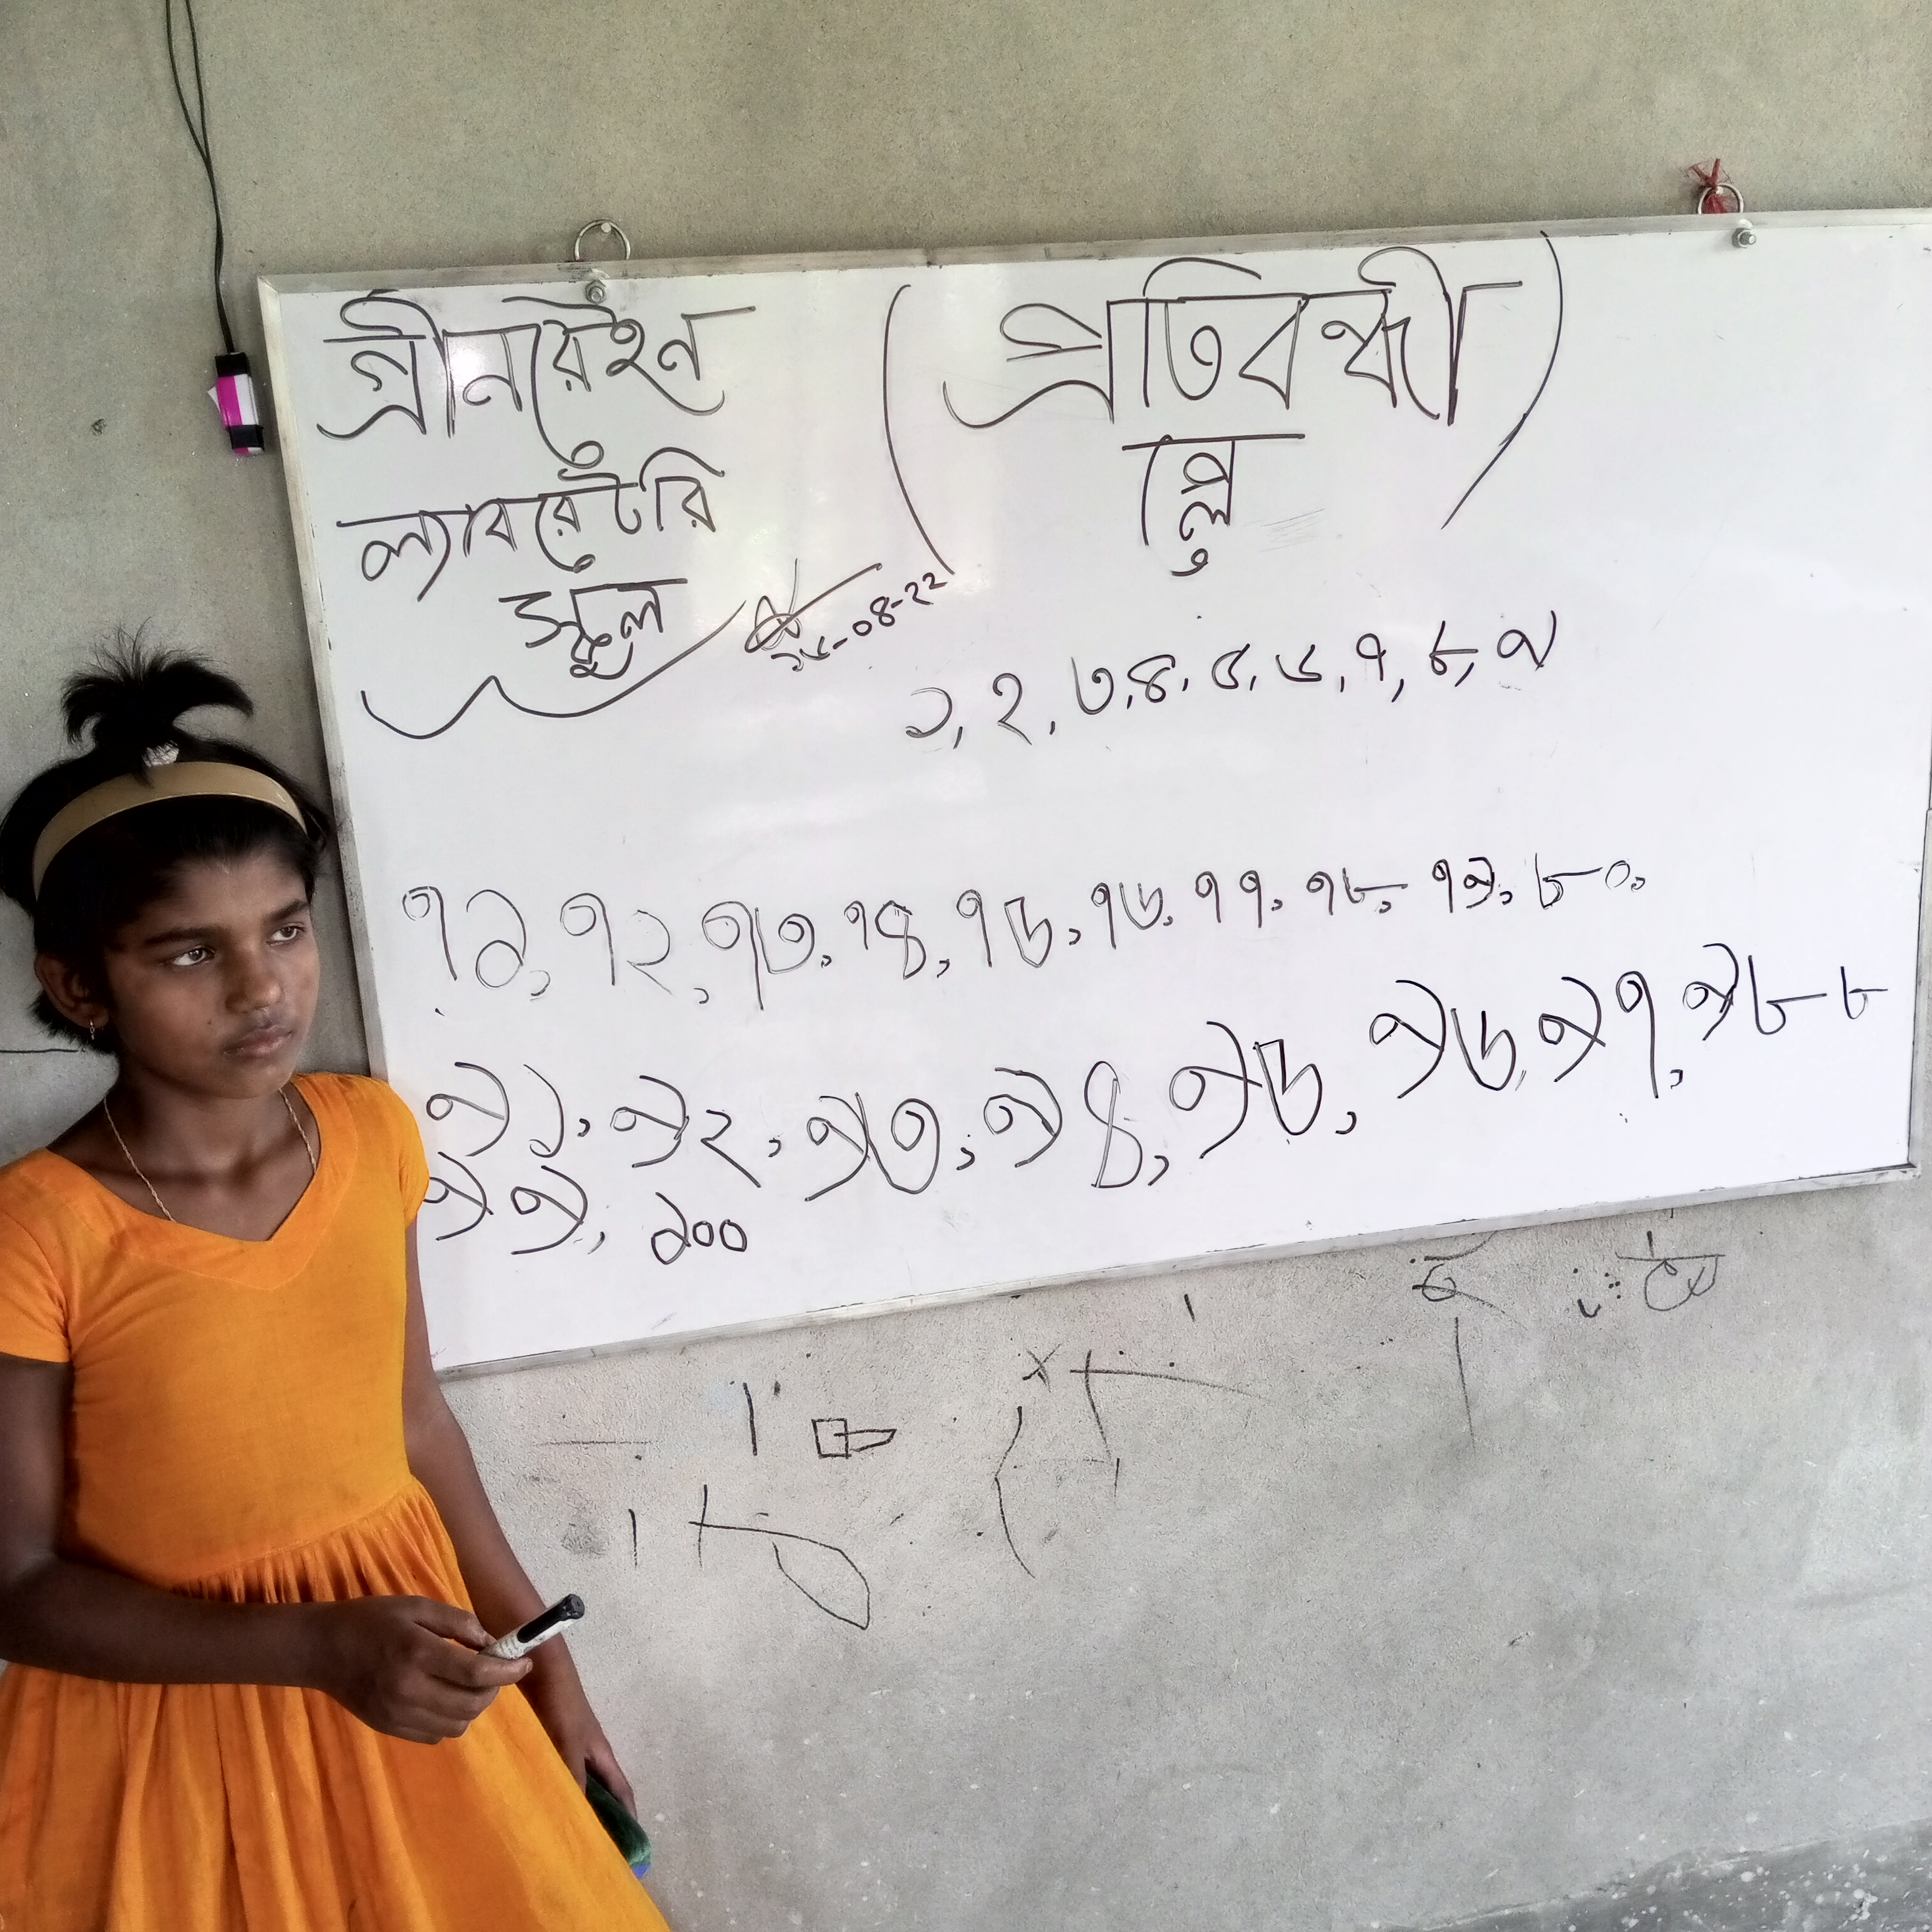 গ্রীনরেইন
ল্যাবরেটরি
স্কুল
(প্রতিবন্ধী
প্লে)
১, ২, ৩, ৪, ৫, ৬, ৭, ৮, ৯
৭১, ৭২, ৭৩, ৭৪, ৭৫, ৭৬, ৭৭, ৭৮, ৭৯, ৮০,
৯১, ৯২, ৯৩, ৯৪, ৯৫, ৯৬, ৯৭, ৯৮ ৮
৯৯, ১০০